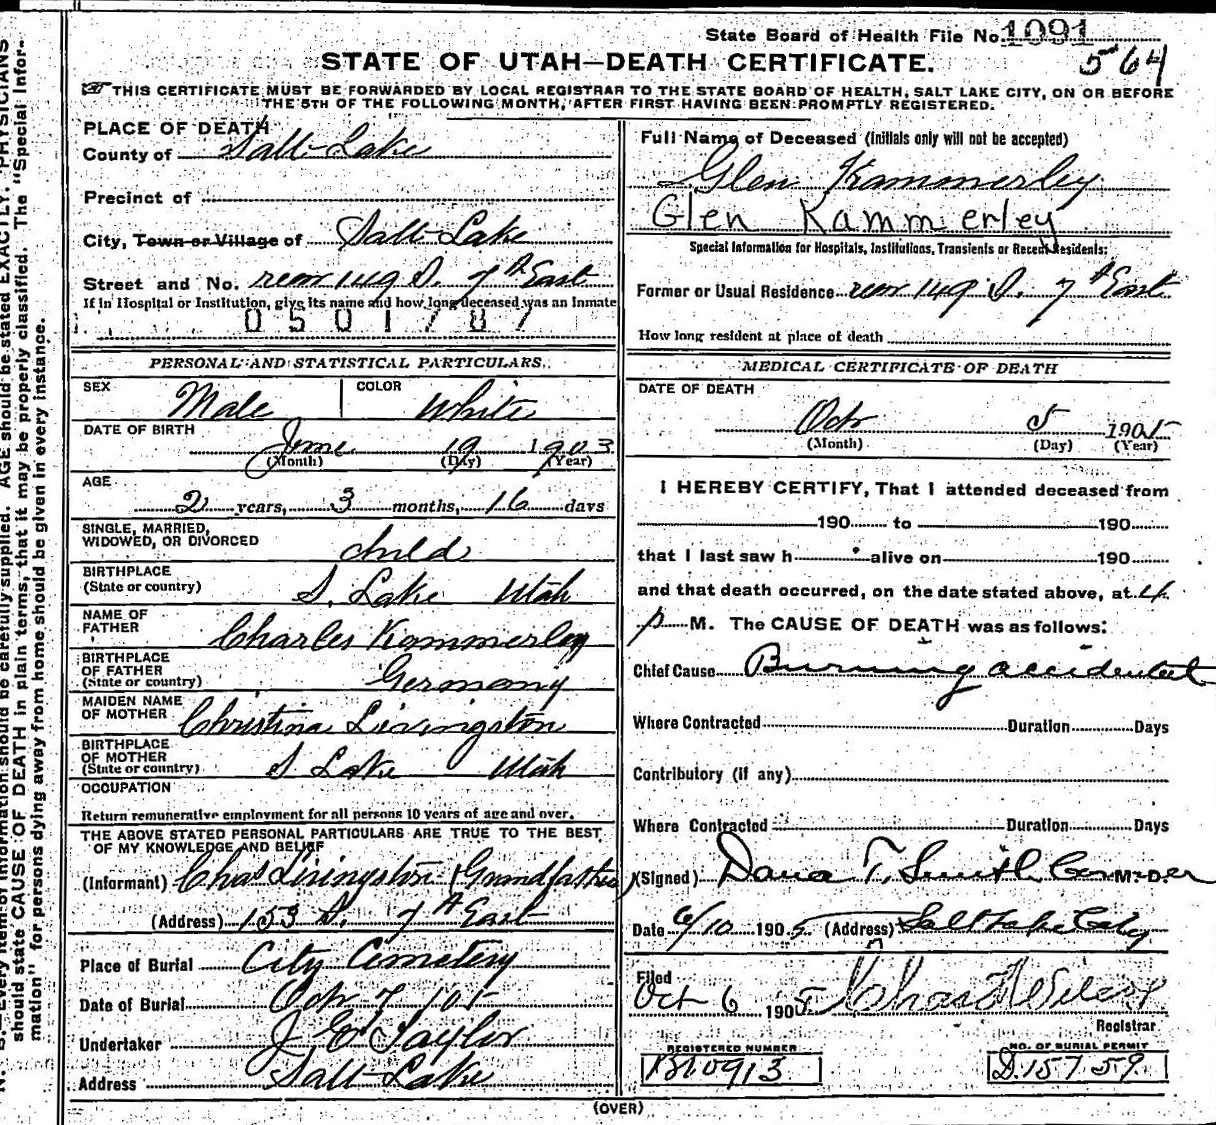 State Board of Health File No. 1091
564
STATE OF UTAH—DEATH CERTIFICATE.
THIS CERTIFICATE MUST BE FORWARDED BY LOCAL REGISTRAR TO THE STATE BOARD OF HEALTH, SALT LAKE CITY, ON OR BEFORE
THE 5TH OF THE FOLLOWING MONTH, AFTER FIRST HAVING BEEN PROMPTLY REGISTERED.
PLACE OF DEATH
County of Salt Lake
Precinct of
City, Town or Village of Salt Lake
Street and No. rear 149 S. 7th East
If in Hospital or Institution, give its name and how long deceased was an Inmate
0501787
PERSONAL AND STATISTICAL PARTICULARS.
SEX Male COLOR White
DATE OF BIRTH
June 19 1903
(Month) (Day) (Year)
AGE
2 years, 3 months, 16 days
SINGLE, MARRIED,
WIDOWED, OR DIVORCED child
BIRTHPLACE
(State or country) S. Lake Utah
NAME OF
FATHER Charles Kammerley
BIRTHPLACE
OF FATHER
(State or country) Germany
MAIDEN NAME
OF MOTHER Christina Livingston
BIRTHPLACE
OF MOTHER
(State or country) S. Lake Utah
OCCUPATION
Return remunerative employment for all persons 10 years of age and over.
THE ABOVE STATED PERSONAL PARTICULARS ARE TRUE TO THE BEST
OF MY KNOWLEDGE AND BELIEF
(Informant) Chas Livingston (Grandfather)
(Address) 153 S. 7th East
Place of Burial City Cemetery
Date of Burial Oct 7 '05
Undertaker J E Taylor
Address Salt Lake
Full Name of Deceased (Initials only will not be accepted)
Glen Kammerley
Glen Kammerley
Special Information for Hospitals, Institutions, Transients or Recent Residents:
Former or Usual Residence rear 149 S. 7th East
How long resident at place of death
MEDICAL CERTIFICATE OF DEATH
DATE OF DEATH
Oct 5 1905
(Month) (Day) (Year)
I HEREBY CERTIFY, That I attended deceased from
190 to 190
that I last saw h alive on 190
and that death occurred, on the date stated above, at 4
p M. The CAUSE OF DEATH was as follows:
Chief Cause Burning accidental
Where Contracted Duration Days
Contributory (if any)
Where Contracted Duration Days
(Signed) Dana T. Smith Coroner M. D.
Date 6/10 1905 (Address) Salt Lake City
Filed
Oct 6 1905 Chas Wilcox
Registrar
REGISTERED NUMBER
B10913
NO. OF BURIAL PERMIT
D.15759
(OVER)
N. B.—Every item of information should be carefully supplied. AGE should be stated EXACTLY. PHYSICIANS
should state CAUSE OF DEATH in plain terms, that it may be properly classified. The "Special Infor-
mation" for persons dying away from home should be given in every instance.